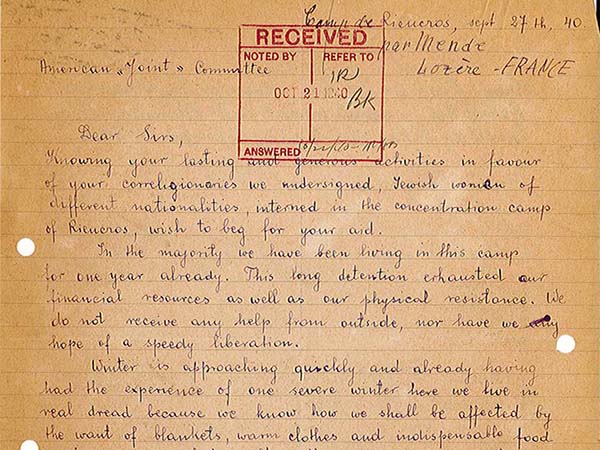 Camp de Rieucros, sept 27th, 40.
par Mende
Lozère - FRANCE
RECEIVED
NOTED BY REFER TO
JR
BK
OCT 21 1940
ANSWERED
American "Joint" Committee
Dear Sirs,
Knowing your lasting and generous activities in favour
of your correligionaries we undersigned, Jewish women of
different nationalities, interned in the concentration camp
of Rieucros, wish to beg for your aid.
In the majority we have been living in this camp
for one year already. This long detention exhausted our
financial resources as well as our physical resistance. We
do not receive any help from outside, nor have we any
hope of a speedy liberation.
Winter is approaching quickly and already having
had the experience of one severe winter here we live in
real dread because we know how we shall be affected by
the want of blankets, warm clothes and indispensable food